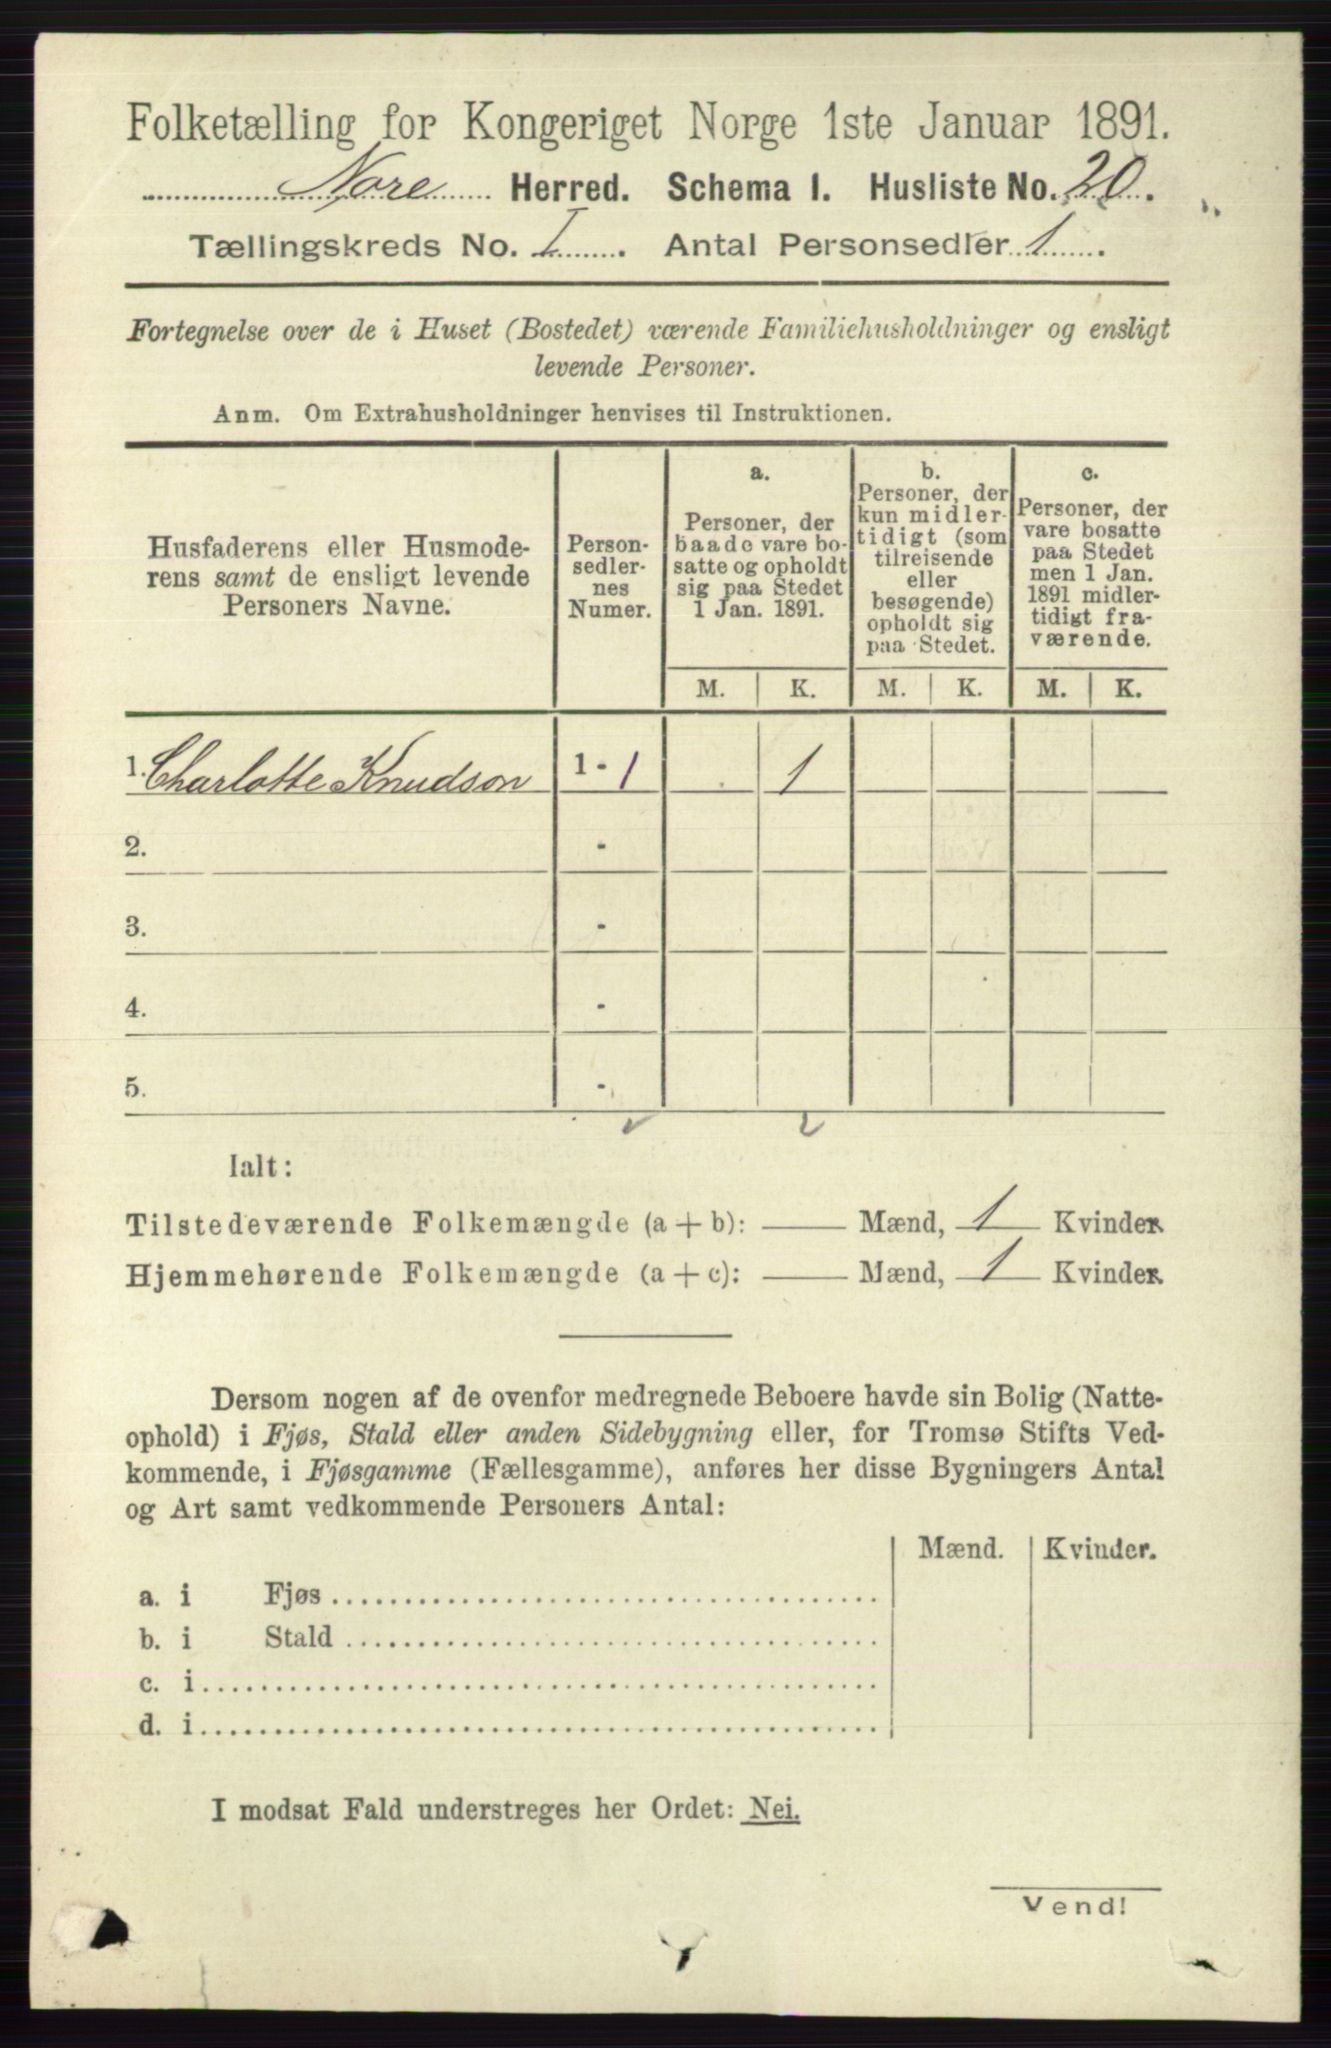 Folketælling for Kongeriget Norge 1ste Januar 1891.
Nore Herred. Schema 1. Husliste No. 20.
Tællingskreds No. I. Antal Personsedler 1.
Fortegnelse over de i Huset (Bostedet) værende Familiehusholdninger og ensligt
levende Personer.
Anm. Om Extrahusholdninger henvises til Instruktionen.
Husfaderens eller Husmode-
rens samt de ensligt levende
Personers Navne.
Person-
sedler-
nes
Numer.
a.
Personer, der
baade vare bo-
satte og opholdt
sig paa Stedet
1 Jan. 1891.
b.
Personer, der
kun midler-
tidigt (som
tilreisende
eller
besøgende)
opholdt sig
paa Stedet.
c.
Personer, der
vare bosatte
paa Stedet
men 1 Jan.
1891 midler-
tidigt fra-
værende.
M. K. M. K. M. K.
1. Charlotte Knudson 1 - 1 1
2. -
3. -
4. -
5. -
Ialt:
Tilstedeværende Folkemængde (a + b): Mænd, 1 Kvinder.
Hjemmehørende Folkemængde (a + c): Mænd, 1 Kvinder.
Dersom nogen af de ovenfor medregnede Beboere havde sin Bolig (Natte-
ophold) i Fjøs, Stald eller anden Sidebygning eller, for Tromsø Stifts Ved-
kommende, i Fjøsgamme (Fællesgamme), anføres her disse Bygningers Antal
og Art samt vedkommende Personers Antal:
Mænd. Kvinder.
a. i Fjøs
b. i Stald
c. i
d. i
I modsat Fald understreges her Ordet: Nei.
Vend!